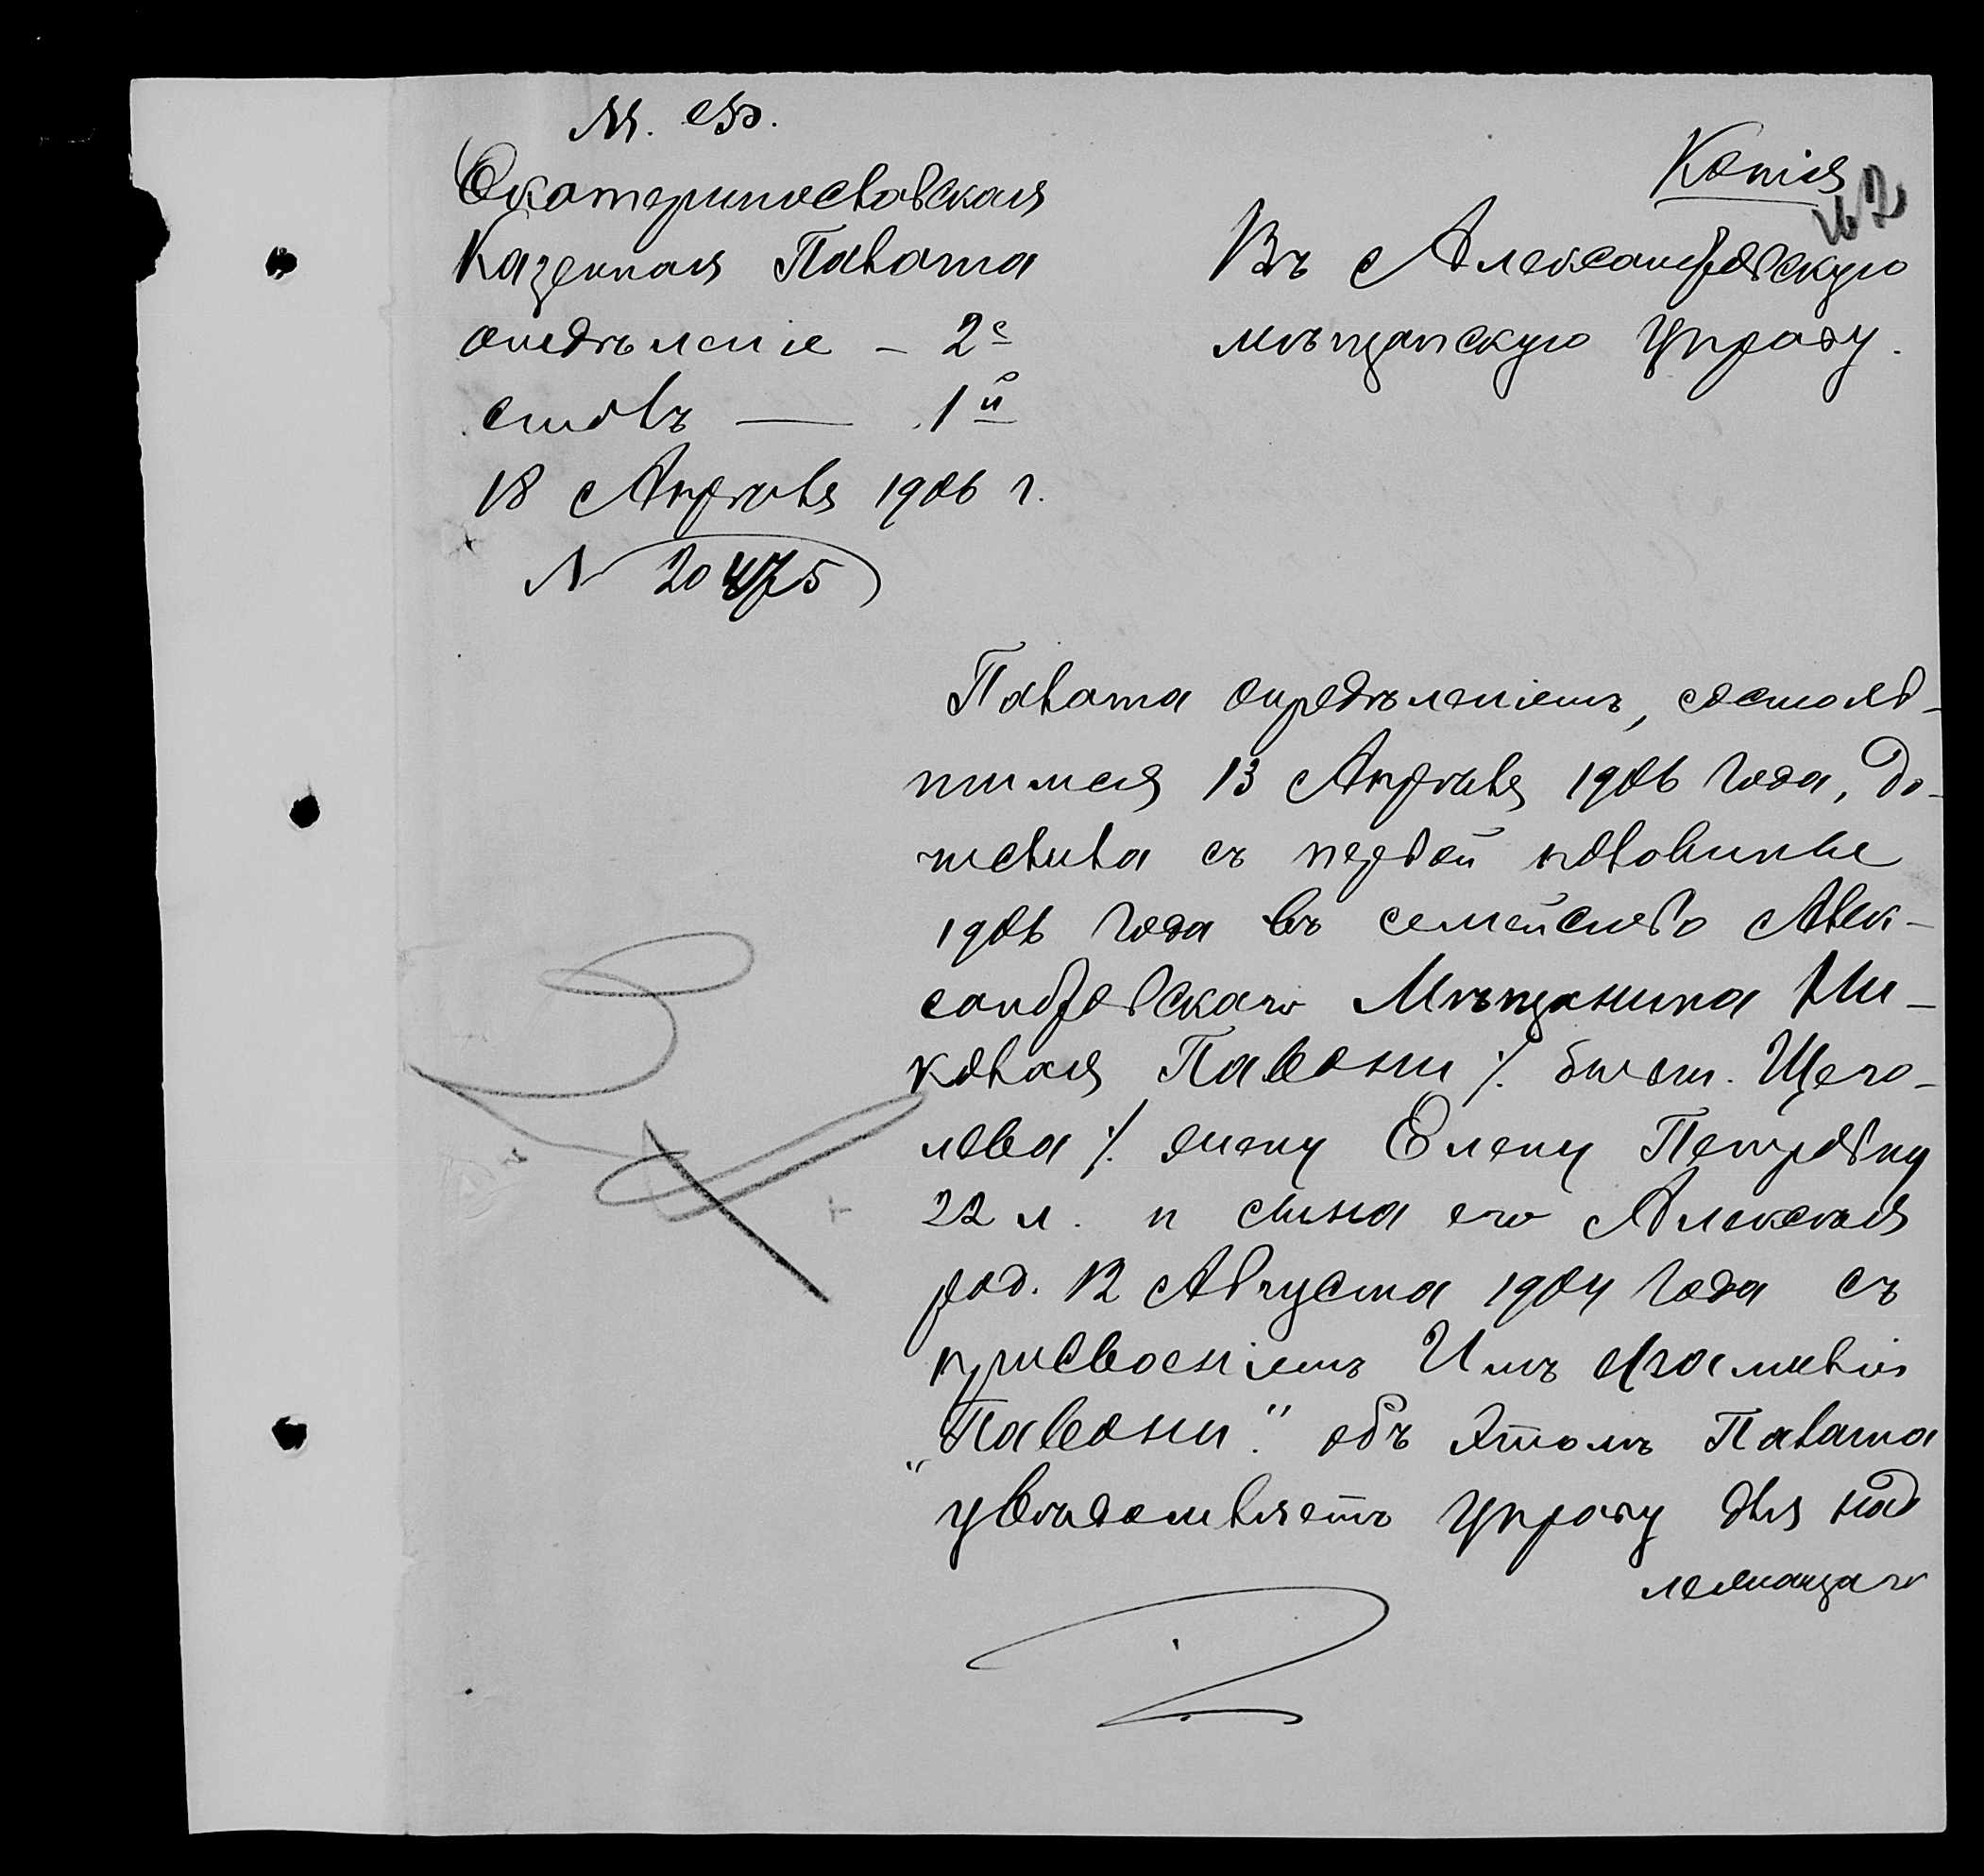 М. Ф.
Екатеринославская
Казенная Палата
отдѣленіе – 2е
столъ — 1й
18 Апрѣля 1906 г.
N 20475
Копія
Въ Александровскую
мѣщанскую Управу.
Палата опредѣленіемъ, состояв-
шимся 13 Апрѣля 1906 года, до-
числила съ первой половины
1906 года въ семейство Алек-
сандровскаго Мѣщанина Ни-
колая Павлони ./. бывш. Щего-
лева ./. жену Елену Петровну
22 л. и сына его Алексѣя
род. 12 Августа 1904 года съ
присвоеніемъ Имъ фамиліи
„Павлони". объ этомъ Палата
увѣдомляетъ Управу для над
лежащаго